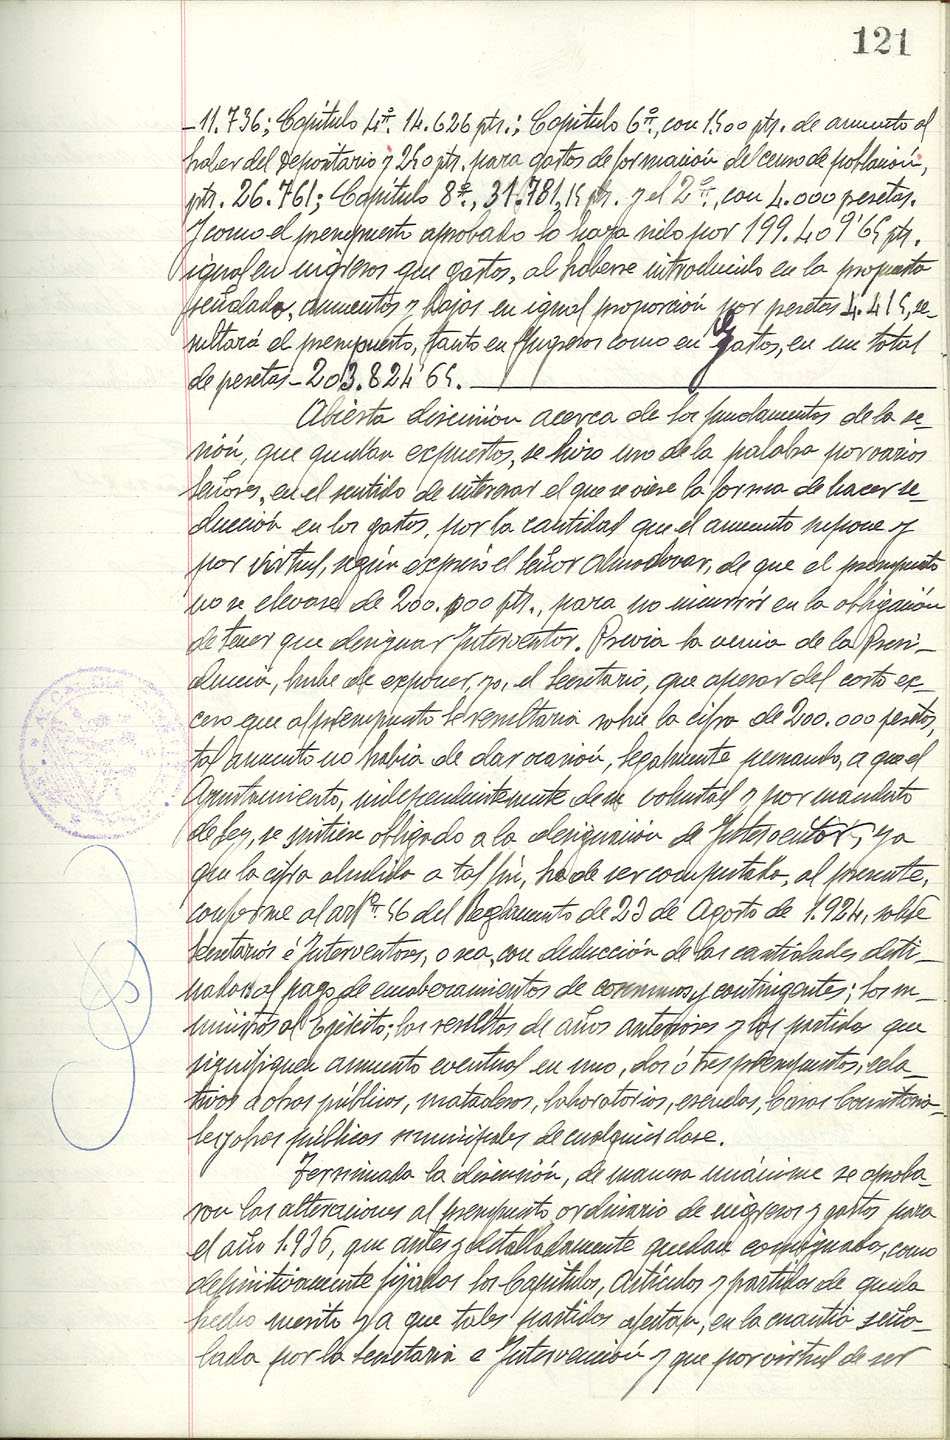 121
-11.736; Capítulo 4º. 14.626 pts.; Capítulo 6º, con 1500 pts. de aumento al
haber del Depositario y 250 pts. para gastos de formación del censo de población,
pts. 26.761; Capítulo 8º, 31.781,15 pts. y el 2º, con 4.000 pesetas.
Y como el presupuesto aprobado lo haya sido por 199.409'65 pts.
igual en ingresos que gastos, al haberse introducido en la propuesta
señalada, aumentos y bajas en igual proporción por pesetas 4.415, re-
sultará el presupuesto, tanto en Ingresos como en gastos, en un total
de pesetas - 203.824'65.
Abierta discusión acerca de los fundamentos de la se-
sión, que quedan expuestos, se hizo uso de la palabra por varios
señores, en el sentido de interesar el que se viese la forma de hacer re-
ducción en los gastos, por la cantidad que el aumento supone y
por virtud, según expresó el señor Almodovar, de que el presupuesto
no se elevase de 200.000 pts., para no incurrir en la obligación
de tener que designar Interventor. Previa la venia de la Presi-
dencia, hube de exponer, yo, el Secretario, que apesar del corto ex-
ceso que al presupuesto le resultaria sobre la cifra de 200.000 pesetas,
tal aumento no habia de dar ocasión, legalmente pensando, a que el
Ayuntamiento, independientemente de su voluntad y por mandato
de Ley, se sintiese obligado a la designación de Interventor, ya
que la cifra aludida a tal fin, ha de ser computada, al presente,
conforme al artº. 56 del Reglamento de 23 de Agosto de 1.924, sobre
Secretarios é Interventores, o sea, con deducción de las cantidades desti-
nadas al pago de encabezamientos de consumos y contingentes; los su-
ministros al Ejército; las resultas de años anteriores y las partidas que
signifiquen aumento eventual en uno, dos ó tres presupuestos, rela-
tivos a obras públicas, mataderos, laboratorios, escuelas, Casas Consistoria-
les y obras públicas municipales de cualquier clase.
Terminada la discusión, de manera unánime se aproba-
ron las alteraciones al presupuesto ordinario de ingresos y gastos para
el año 1.936, que antes y detalladamente quedan consignadas, como
definitivamente fijados los Capítulos, Artículos y partidas de queda
hecho merito ya que tales partidas afectan, en la cuantia seña-
lada por la Secretaria e Intervención y que por virtud de ser